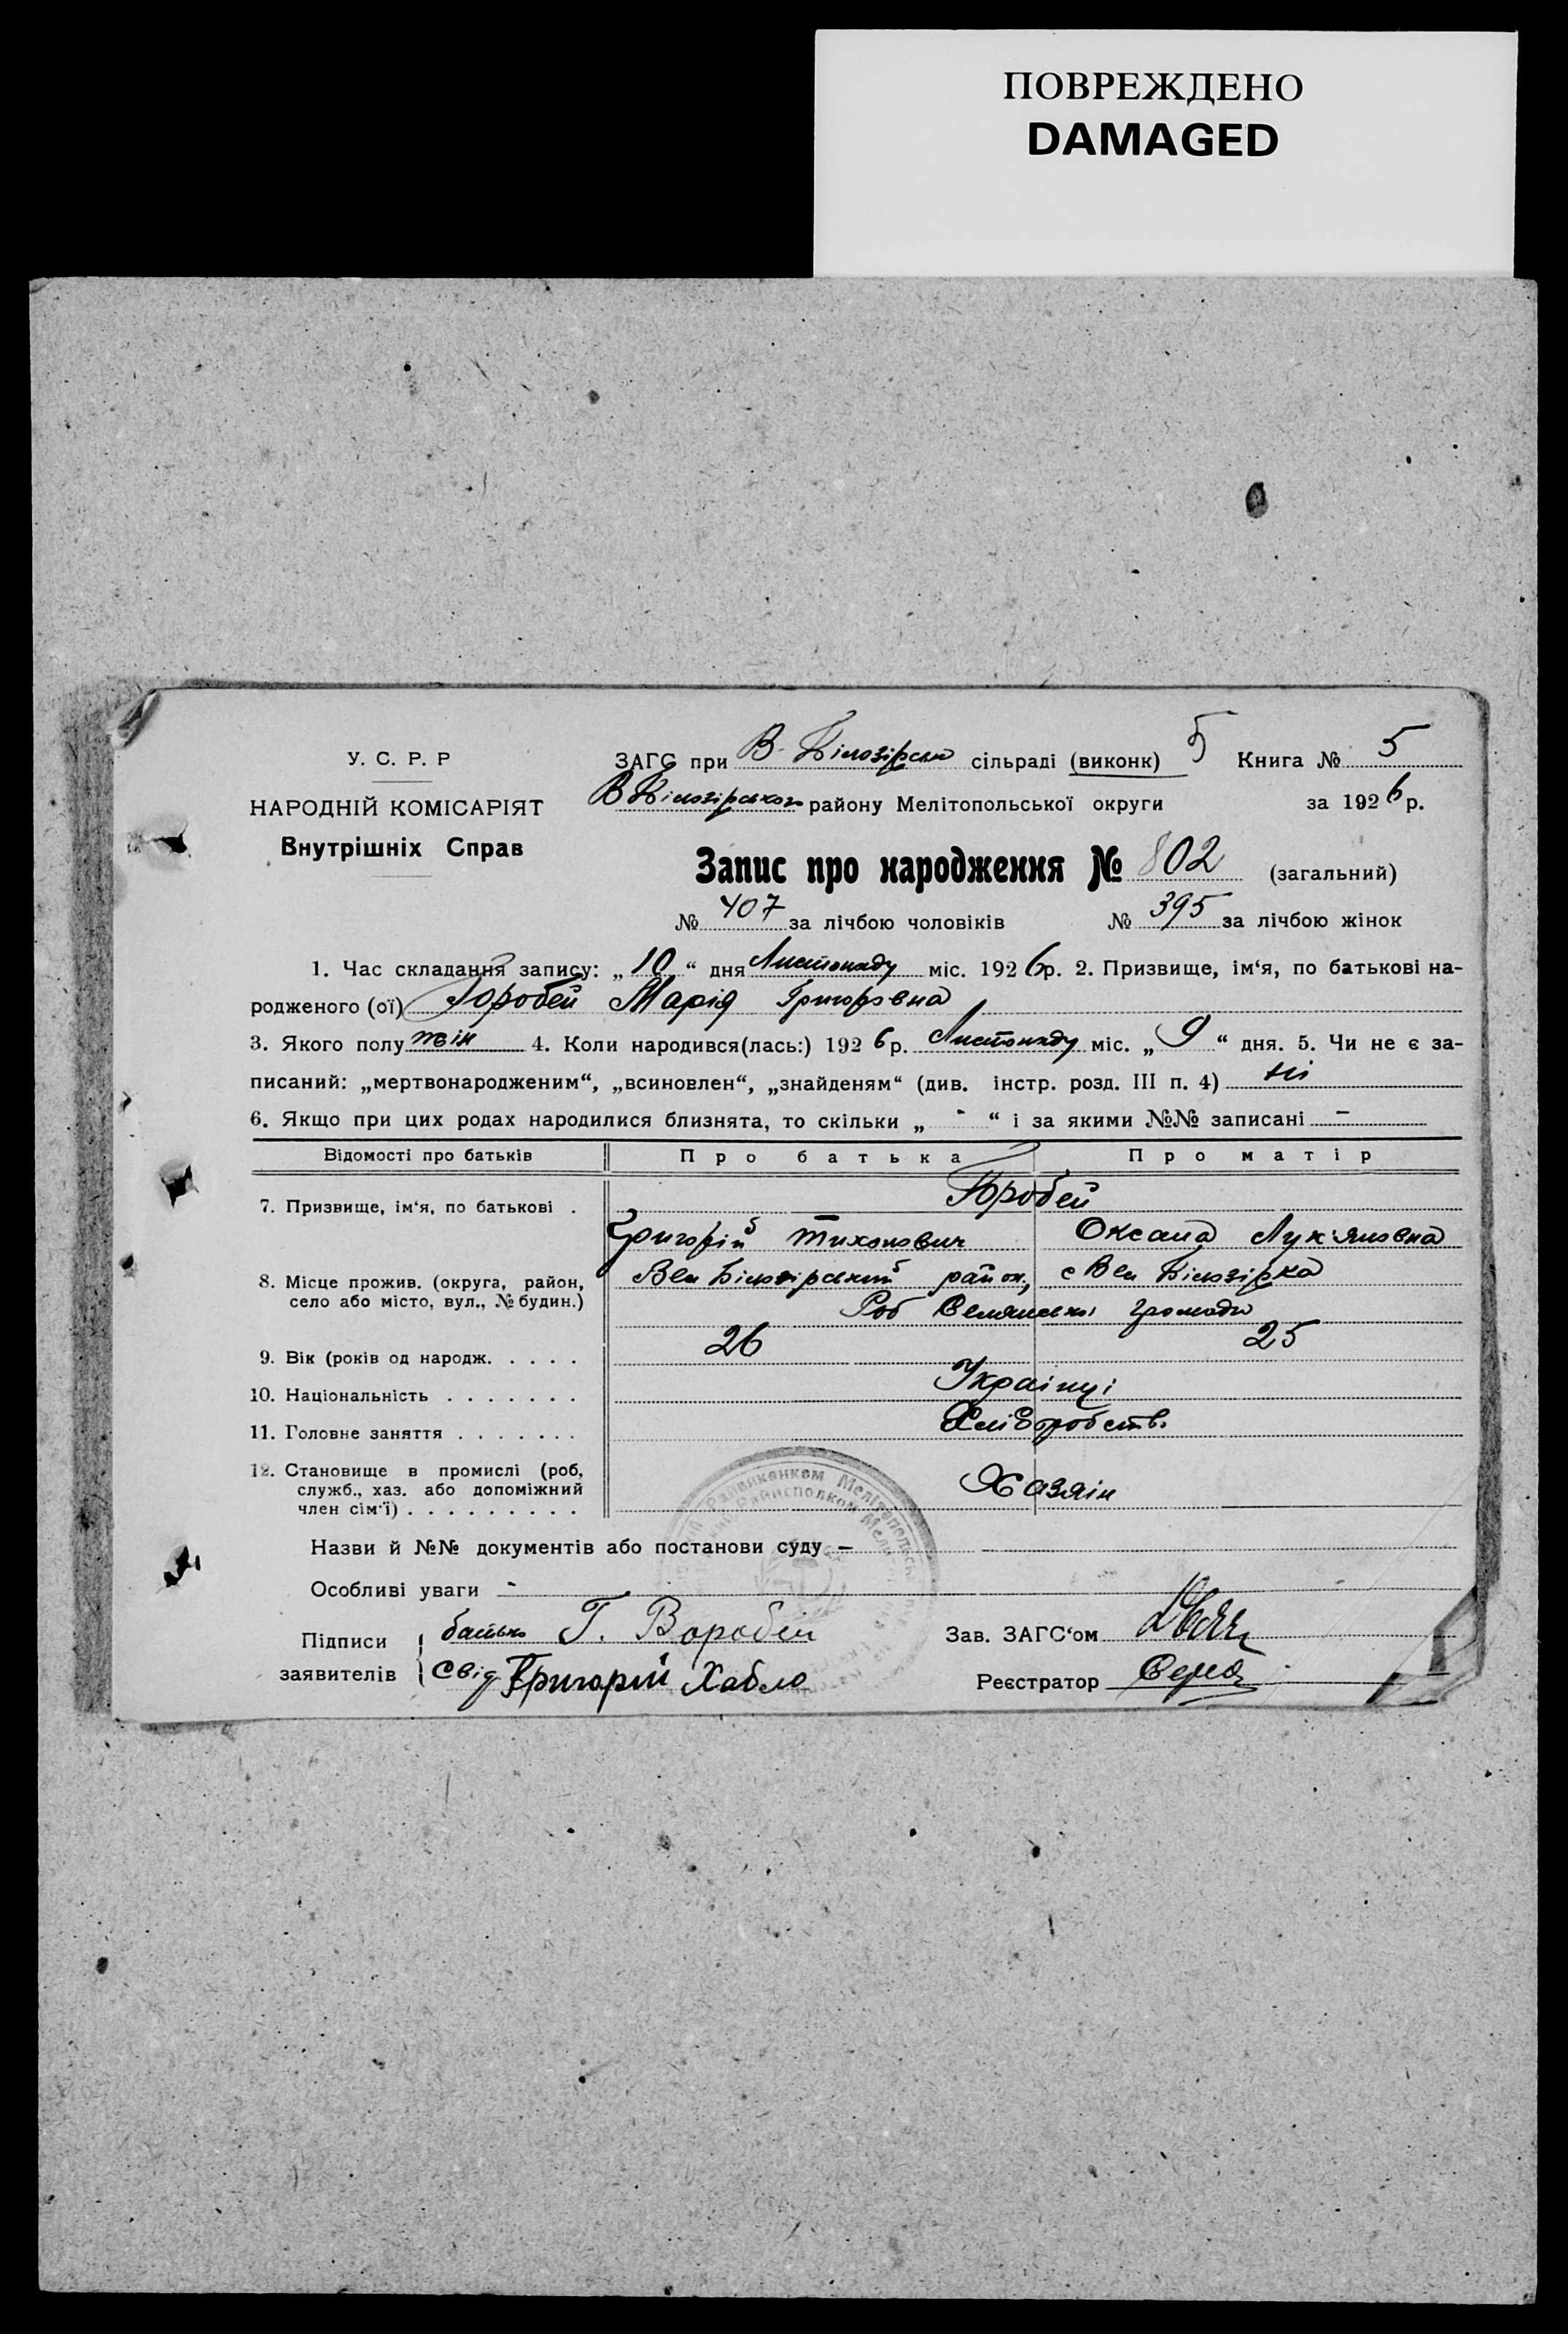 ПОВРЕЖДЕНО
DAMAGED
У. С. Р. Р
НАРОДНІЙ КОМІСАРІЯТ
Внутрішніх Справ
ЗАГС при В Білозірськ сільраді (виконк) 5 Книга № 5
В Білозірського району Мелітопольської округи за 1926 р.
Запис про народження № 802 (загальний)
№ 407 за лічбою чоловіків № 395 за лічбою жінок
1. Час складання запису: „10“ дня Листопаду міс. 1926 р. 2. Призвище, ім‘я, по батькові на-
родженого (ої) Горобей Марія Григоровна
3. Якого полу жін 4. Коли народився(лась:) 1926 р. Листопаду міс. „9“ дня. 5. Чи не є за-
писаний: „мертвонародженим“, „всиновлен“, „знайденям“ (див. інстр. розд. III п. 4) ні
6. Якщо при цих родах народилися близнята, то скільки „ - “ і за якими №№ записані —
Відомості про батьків Про батька Про матір
7. Призвище, ім‘я, по батькові . Горобей
Григорій Тихонович Оксана Лук‘яновна
8. Місце прожив. (округа, район, село або місто, вул., № будин.) Вел Білозірський район, с Вел Білозірка
Роб Селянської громади
9. Вік (років од народж. . . . . 26 25
10. Національність . . . . . . . Українці
11. Головне заняття . . . . . . . Хліборобств.
12. Становище в промислі (роб, служб., хаз. або допоміжний член сім‘ї) . . . . . . . . . Хазяїн
Назви й №№ документів або постанови суду —
Особливі уваги -
Підписи заявителів { батько Г. Воробей
Свід Григорій Хабло
Зав. ЗАГС‘ом
Реєстратор